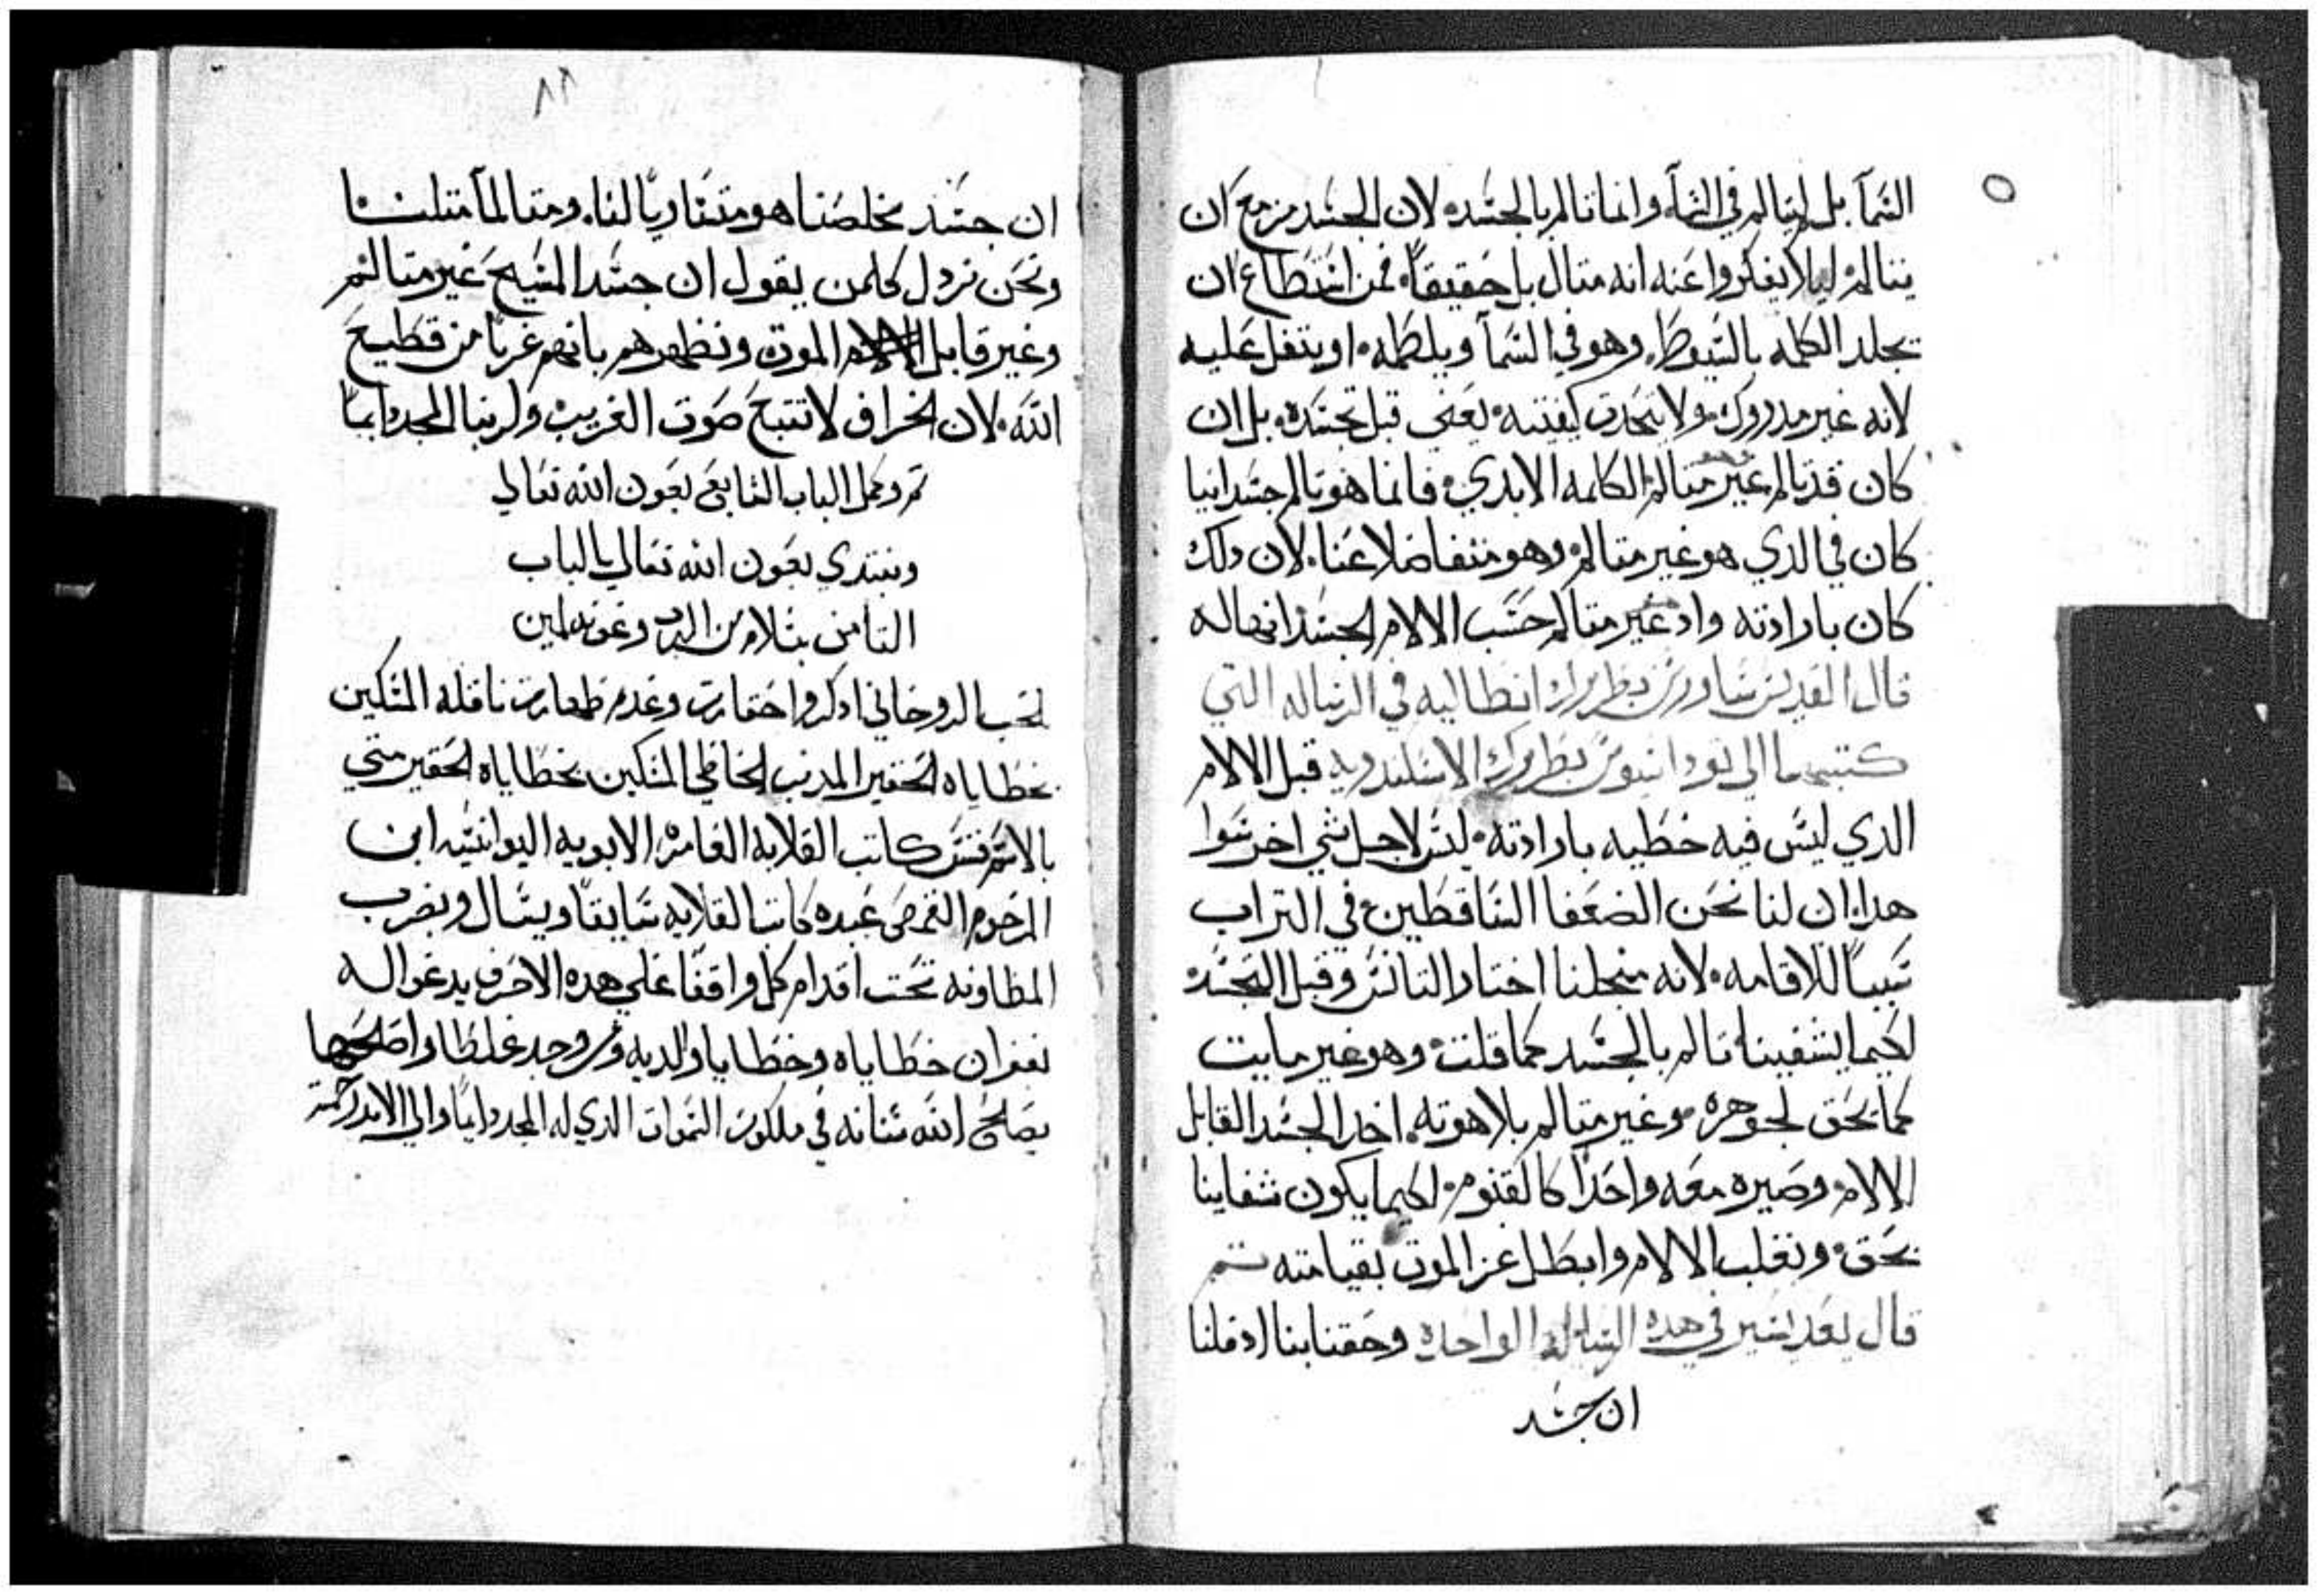 السما بل ليتالم في السما وانما تالم بالجسد لان الجسد مزمع ان
يتالم ليلا يفكروا عنه انه متال بل حقيقاً فمن استطاع ان
يجلد الكلمه بالسيوط وهو في السما ويلطمه او يتفل عليه
لانه غير مدروك ولا يتحدق كيفتيه يعني قبل تجسده بل ان
كان قد تالم غير متالم الكلمه الابدي فانما هو تالم جسدانيا
كان في الدي هو غير متالم وهو متفاضلا عنا لان دلك
كان بارادته واد غير متالم حسب الالام الجسدانيه اله
قال القديس ساورس بطريرك انطاكيه في الرساله التي
كتبها الى تودانيوس بطريرك الاسكندريه قبل الالام
الدي ليس فيه خطيه بارادته ليس لاجل شي اخر سوا
هدا ان لنا نحن الضعفا الساقطين في التراب
سبباً للاقامه لانه منجلنا اختار التانس وقبل التجسد
لكيما يشفينا تالم بالجسد كما قلت وهو غير مايت
كما يحق لجوهره وغير متالم بلاهوته اخد الجسد القابل
الالام وصيره معه واحداً كالقنوم لكيما يكون شفاينا
بحق وتغلب الالام وابطل عز الموت بقيامته تم
قال يعد اسير في هده الرساله الواحده وحقنا بنا اد قلنا
ان جسد
٨٨
ان جسد مخلصنا هو متساوياً لنا ومتالماً متلنا
ونحن نردل كلمن يقول ان جسد المسيح غير متالم
وغير قابل الموت ونظهرهم بانهم غرباً من قطيع
الله لان الخراف لا تتبع صوت الغريب ولربنا المجد دايماً
تم وكمل الباب السابع بعون الله تعالى
ونبتدي بعون الله تعالى بالباب
التامن بسلام من الرب وعونه امين
لمحب الروحاني ادكروا حقارت وعدم طهارت ناقله المسكين
بخطاياه الحقير المدنب الخاطي المسكين بخطاياه الحقير متى
بالاسم قس كاتب القلايه العامره الابويه اليوانسيه ابن
المرحوم القمص عبده كاتب القلايه سابقاً ويسال ويضرب
المطاونه تحت اقدام كل واقفاً على هده الاحرف يدعوا له
بغفران خطاياه وخطايا والديه ومن وجد غلطا واصلحها
يصلح الله شانه في ملكوت السموات الدي له المجد دايماً والى الابد امين